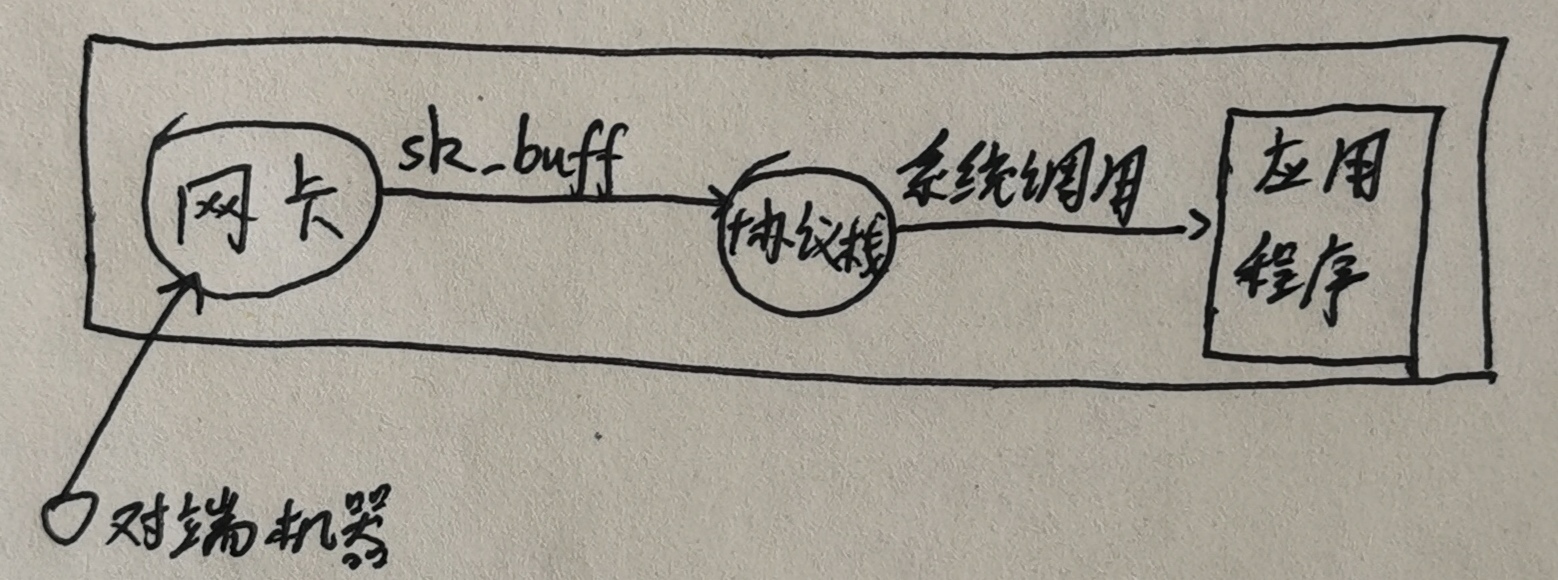 网卡
sk_buff
协议栈
系统调用
应用
程序
对端机器